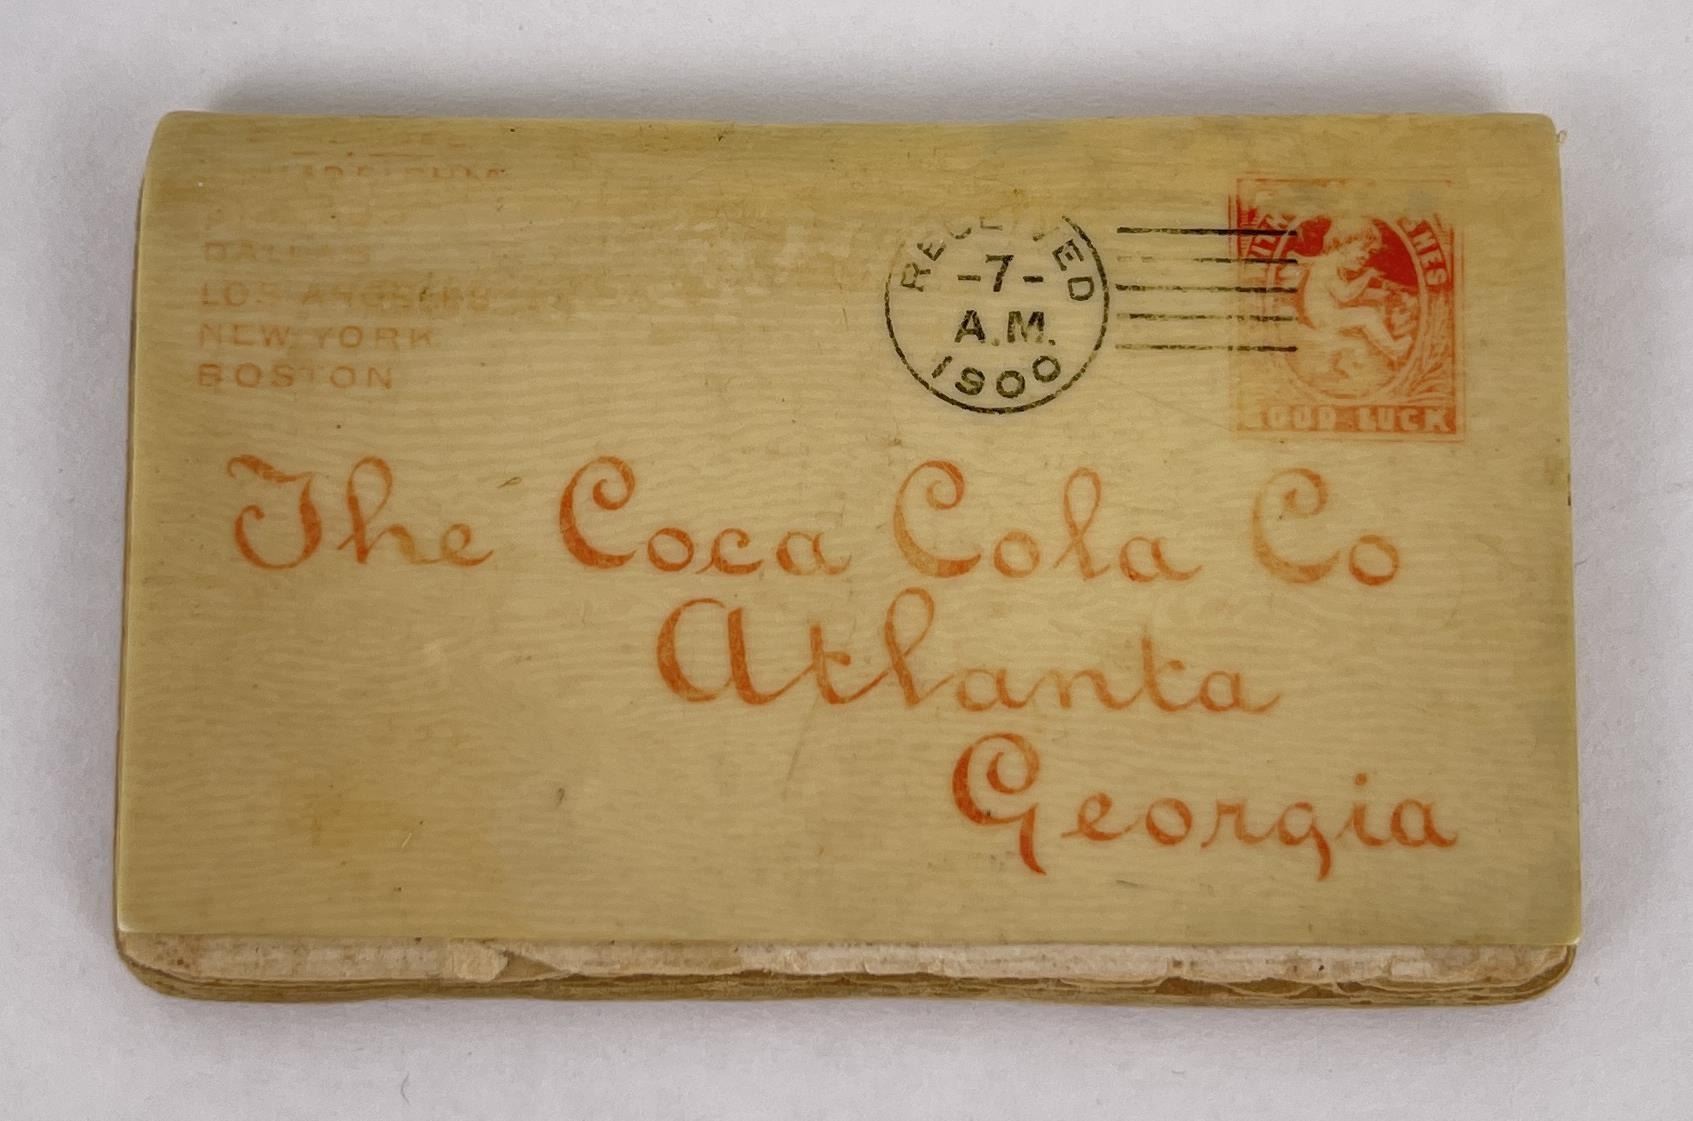 DALLAS
LOS ANGELES
NEW YORK
BOSTON
RECEIVED
-7-
A.M.
1900
GOOD LUCK
The Coca Cola Co
Atlanta
Georgia